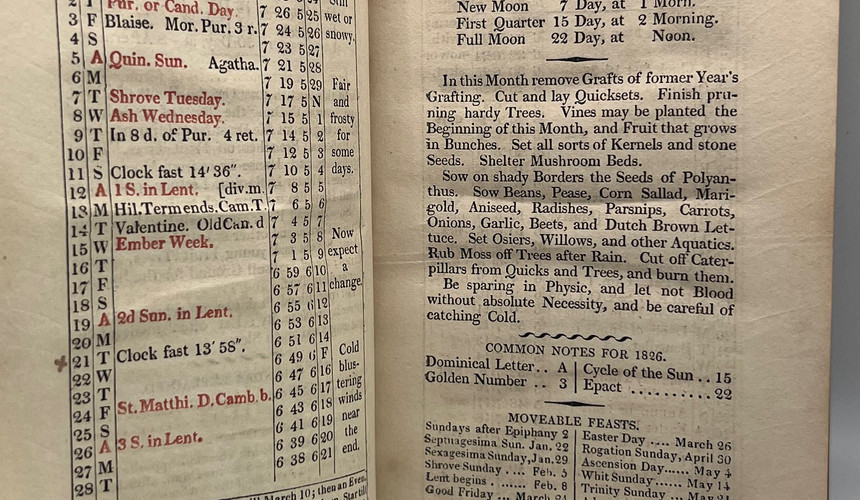 2 T Pur. or Cand. Day.
3 F Blaise. Mor. Pur. 3 r. 7 26 5 25 wet or
4 S 7 24 5 26 snowy.
7 23 5 27
5 A Quin. Sun. Agatha. 7 21 5 28
6 M 7 19 5 29 Fair
7 T Shrove Tuesday. 7 17 5 N and
8 W Ash Wednesday. 7 15 5 1 frosty
9 T In 8 d. of Pur. 4 ret. 7 14 5 2 for
10 F 7 12 5 3 some
11 S Clock fast 14′ 36″. 7 10 5 4 days.
12 A 1 S. in Lent. [div.m. 7 8 5 5
13 M Hil. Term ends. Cam. T. 7 6 5 6
14 T Valentine. Old Can. d 7 4 5 7
15 W Ember Week. 7 3 5 8 Now
16 T 7 1 5 9 expect
17 F 6 59 6 10 a
18 S 6 57 6 11 change.
19 A 2d Sun. in Lent. 6 55 6 12
20 M 6 53 6 13
21 T Clock fast 13′ 58″. 6 51 6 14
22 W 6 49 6 F Cold
23 T 6 47 6 16 blus-
24 F St. Matthi. D. Camb. b. 6 45 6 17 tering
25 S 6 43 6 18 winds
26 A 3 S. in Lent. 6 41 6 19 near
27 M 6 39 6 20 the
28 T 6 38 6 21 end.
March 10; then an Even.
New Moon 7 Day, at 1 Morn.
First Quarter 15 Day, at 2 Morning.
Full Moon 22 Day, at Noon.
In this Month remove Grafts of former Year's
Grafting. Cut and lay Quicksets. Finish pru-
ning hardy Trees. Vines may be planted the
Beginning of this Month, and Fruit that grows
in Bunches. Set all sorts of Kernels and stone
Seeds. Shelter Mushroom Beds.
Sow on shady Borders the Seeds of Polyan-
thus. Sow Beans, Pease, Corn Sallad, Mari-
gold, Aniseed, Radishes, Parsnips, Carrots,
Onions, Garlic, Beets, and Dutch Brown Let-
tuce. Set Osiers, Willows, and other Aquatics.
Rub Moss off Trees after Rain. Cut off Cater-
pillars from Quicks and Trees, and burn them.
Be sparing in Physic, and let not Blood
without absolute Necessity, and be careful of
catching Cold.
COMMON NOTES FOR 1826.
Dominical Letter.. A Cycle of the Sun .. 15
Golden Number .. 3 Epact .......... 22
MOVEABLE FEASTS.
Sundays after Epiphany 2 Easter Day .... March 26
Septuagesima Sun. Jan. 22 Rogation Sunday, April 30
Sexagesima Sunday, Jan. 29 Ascension Day...... May 4
Shrove Sunday ... Feb. 5 Whit Sunday...... May 14
Lent begins ....... Feb. 8 Trinity Sunday ... May 21
Good Friday ... March 24